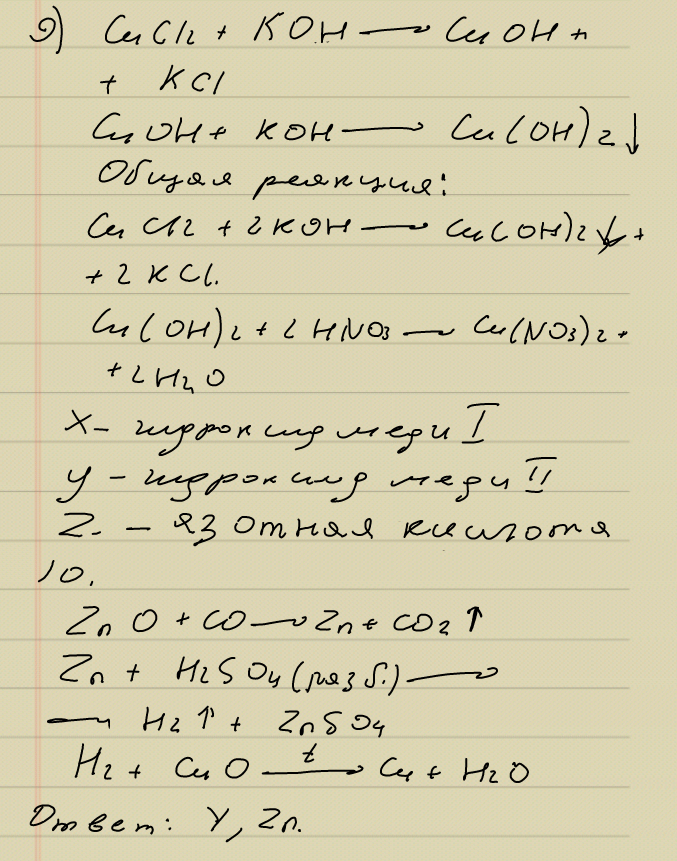 9) CuCl2 + KOH → CuOH +
+ KCl
CuOH + KOH → Cu(OH)2↓
Общая реакция:
CuCl2 + 2KOH → Cu(OH)2↓ +
+ 2KCl.
Cu(OH)2 + 2HNO3 → Cu(NO3)2 +
+ 2H2O
X – гидроксид меди I
Y – гидроксид меди II
Z. – азотная кислота
10.
ZnO + CO → Zn + CO2↑
Zn + H2SO4 (разб.) →
→ H2↑ + ZnSO4
H2 + CuO t→ Cu + H2O
Ответ: Y, Zn.